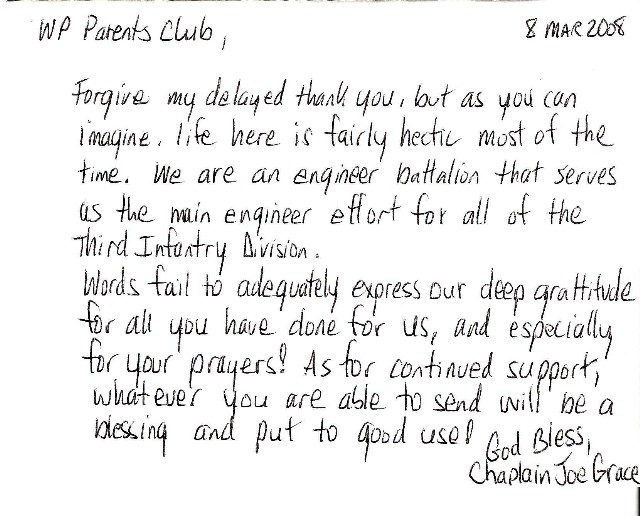 WP Parents Club,
8 MAR 2008
Forgive my delayed thank you, but as you can
imagine, life here is fairly hectic most of the
time. We are an engineer battalion that serves
as the main engineer effort for all of the
Third Infantry Division.
Words fail to adequately express our deep grattitude
for all you have done for us, and especially
for your prayers! As for continued support,
whatever you are able to send will be a
blessing and put to good use!
God Bless,
Chaplain Joe Grace